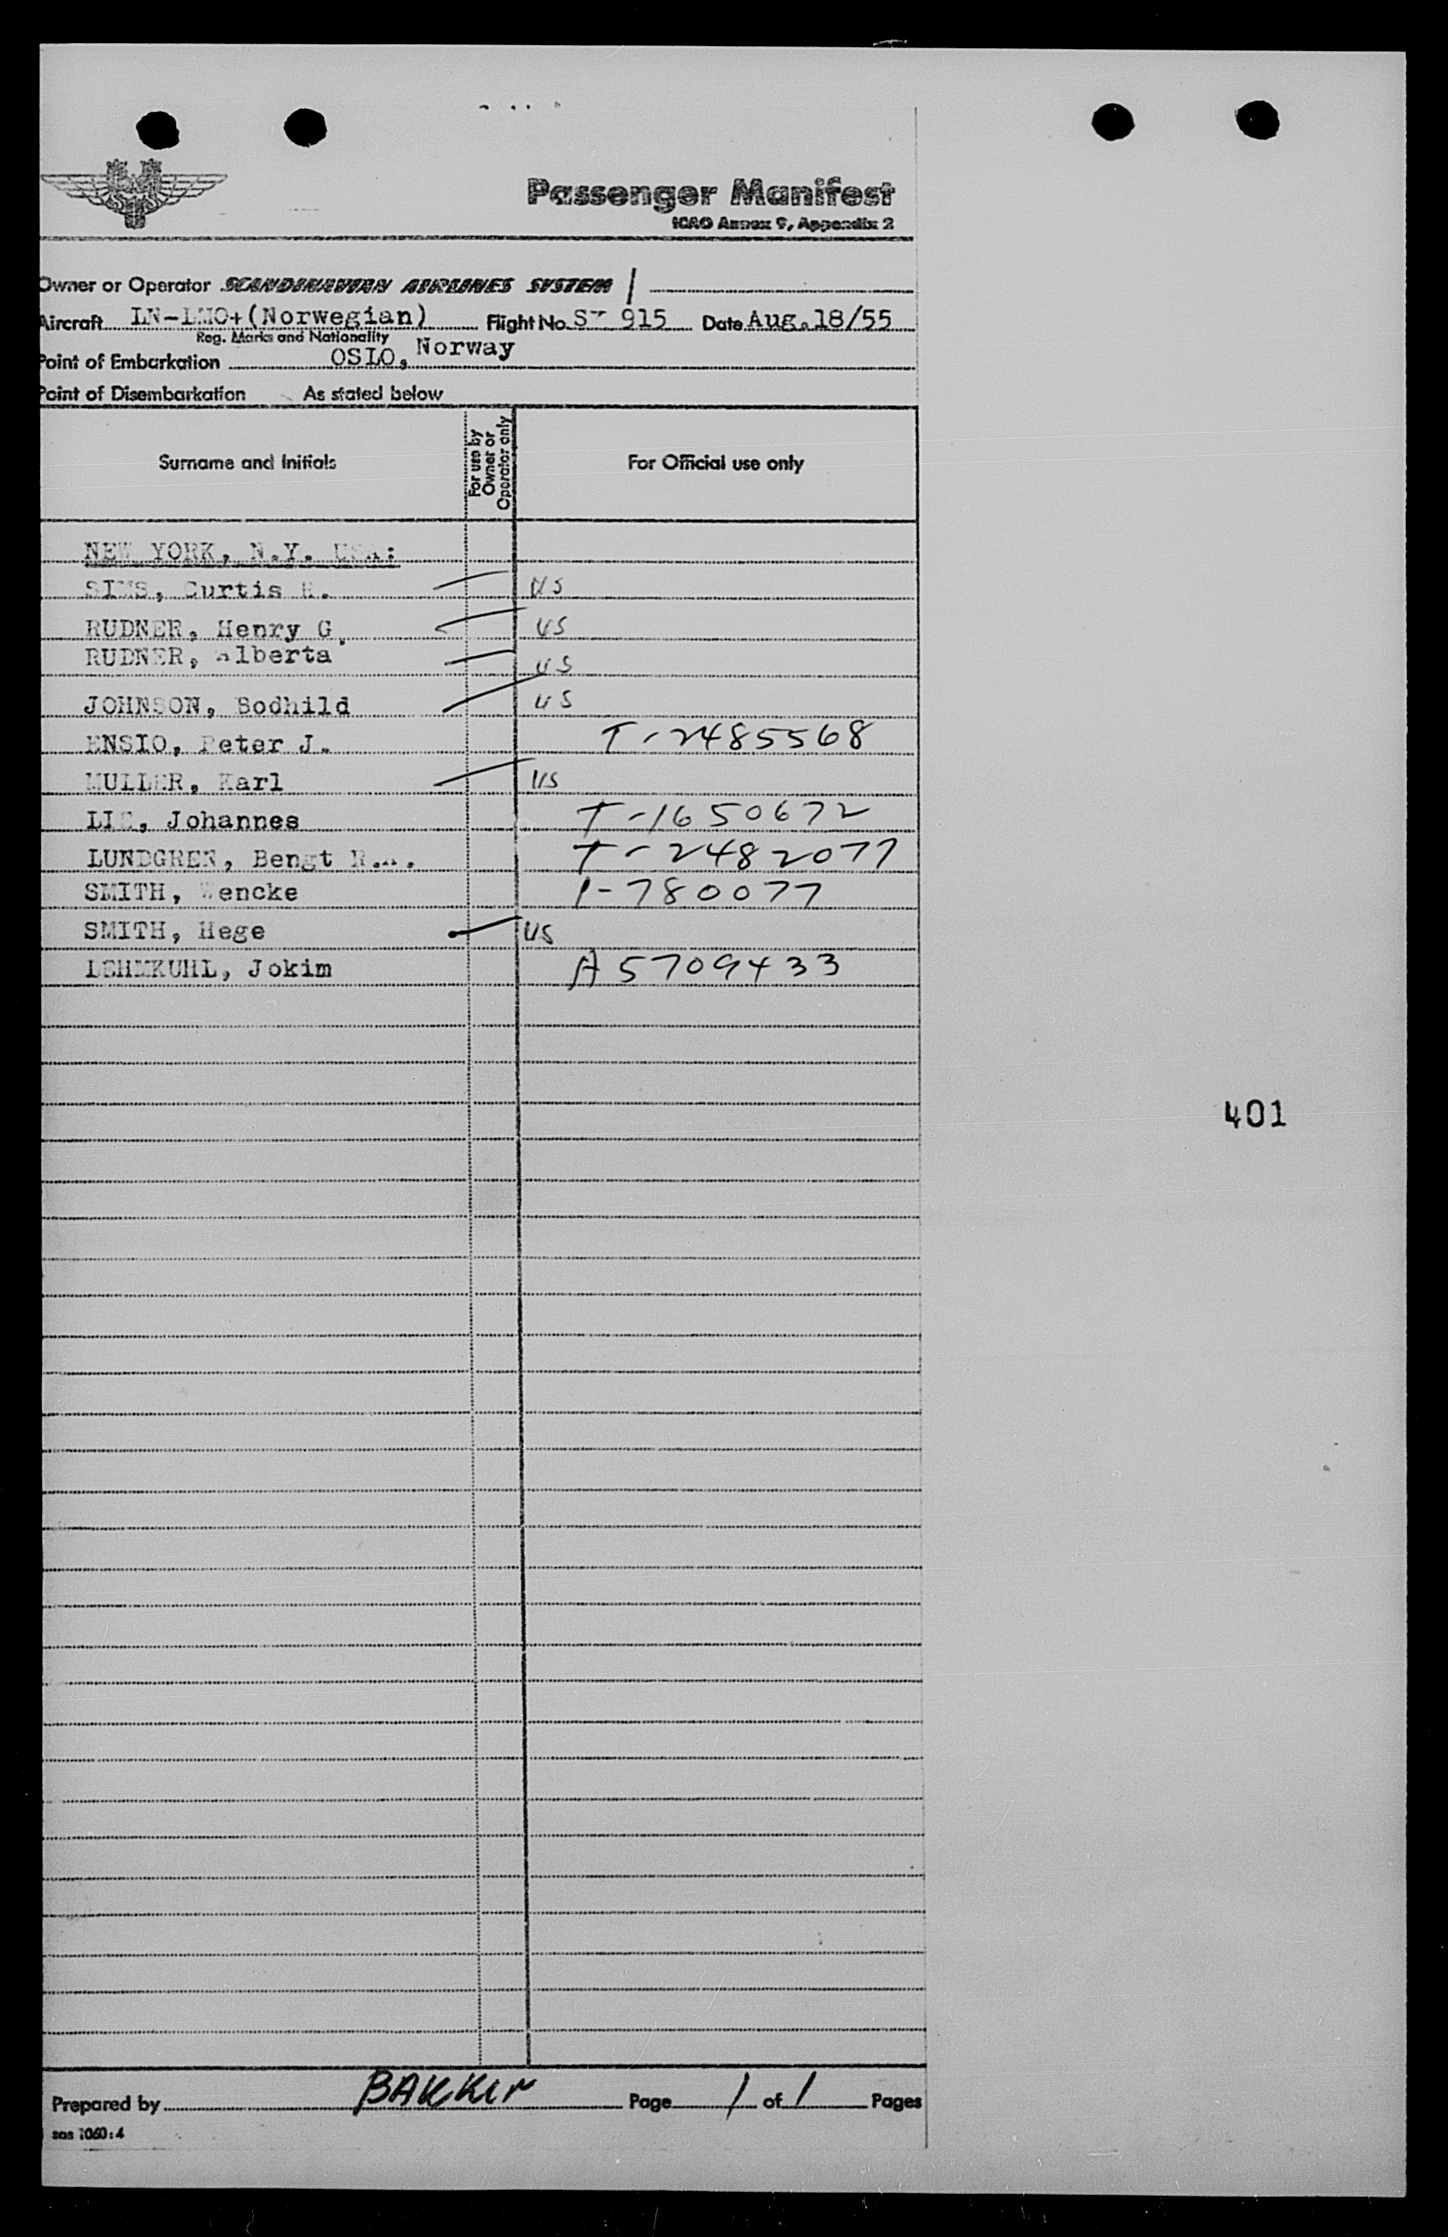 Passenger Manifest
ICAO Annex 9, Appendix 2
Owner or Operator SCANDINAVIAN AIRLINES SYSTEM
Aircraft LN-LMO+(Norwegian) Flight No. SK 915 Date Aug. 18/55
Reg. Marks and Nationality
Point of Embarkation OSLO, Norway
Point of Disembarkation As stated below
Surname and Initials
For use by Owner or Operator only
For Official use only
NEW YORK, N.Y. USA:
SIMS, Curtis US
RUDNER, Henry G. US
RUDNER, Alberta US
JOHNSON, Bodhild US
ENSIO, Peter J. T-2485568
MULLER, Karl US
LIE, Johannes T-1650672
LUNDGREN, Bengt T-2482077
SMITH, Wencke 1-780077
SMITH, Hege US
LEHMKUHL, Jokim A5709433
401
Prepared by Page 1 of 1 Pages
sas 1060:4